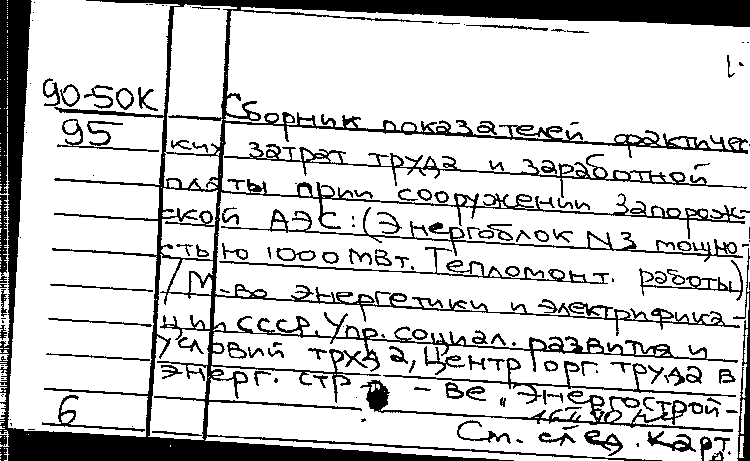 1.
90-50К
95
Сборник показателей фактичес-
ких затрат труда и заработной
платы прии сооружении Запорож-
ской АЭС: (Энергоблок N3 мощно-
стью 1000 МВт. Тепломонт. работы)
/ М-во энергетики и электрифика-
ции СССР. Упр. социал. развития и
условий труда, Центр орг. труда в
энерг. стр - ве „Энергострой-
6
См. след. карт.